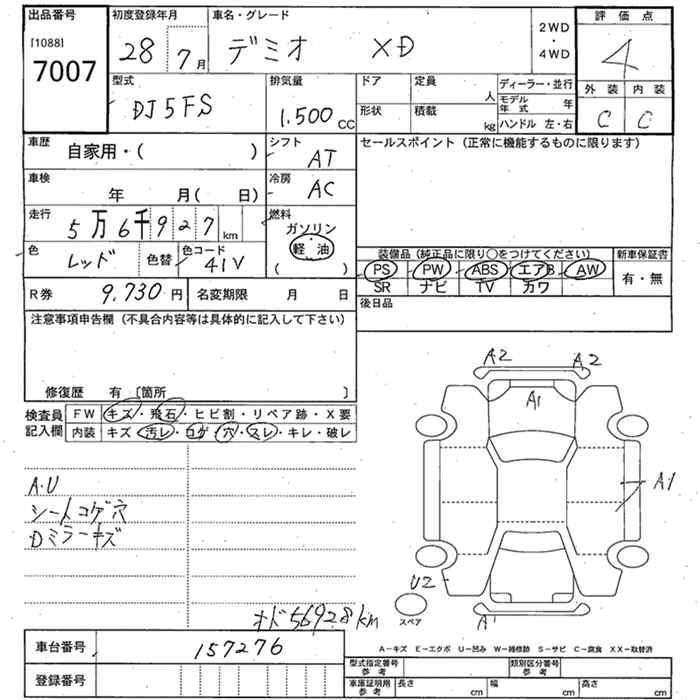 出品番号
[1088]
7007
初度登録年月
28 7月
車名・グレード
デミオ XD
2WD
・
4WD
評価点
4
外装 内装
C C
型式
DJ5FS
排気量
1.500 cc
ドア
定員
人
形状
積載
kg
ディーラー・並行
モデル年式 年
ハンドル 左・右
車歴
自家用・( )
シフト
AT
セールスポイント (正常に機能するものに限ります)
車検
年 月( 日)
冷房
AC
走行
5万6千927 km
燃料
ガソリン
・
軽油
( )
色
レッド
色替
色コード
41V
装備品 (純正品に限り○をつけてください)
PS PW ABS エアB AW
SR ナビ TV カワ
新車保証書
有・無
R券 9,730円
名変期限 月 日
後日品
注意事項申告欄 (不具合内容等は具体的に記入して下さい)
修復歴 有 〔箇所 〕
検査員記入欄
FW キズ・飛石・ヒビ割・リペア跡・X要
内装 キズ・汚レ・コゲ・穴・スレ・キレ・破レ
A・U
シートコゲ穴
Dミラーキズ
オド56928km
A2 A2
A1
A1
U2
スペア
A1
車台番号 157276
登録番号
A-キズ E-エクボ U-凹み W-補修跡 S-サビ C-腐食 XX-取替済
型式指定番号 参考
類別区分番号 参考
車庫証明用 参考 長さ cm 幅 cm 高さ cm